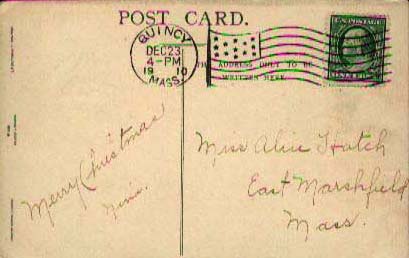 POST CARD.
QUINCY
DEC 23
4-PM
19 10
MASS.
U.S. POSTAGE
THE ADDRESS ONLY TO BE
WRITTEN HERE
Merry Christmas
Miss Alice Hatch
East Marshfield
Mass.